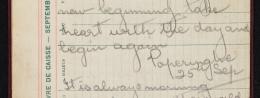 now beginning, take
heart with the day and
begin again
Poperinghe
25 Sep
It is always morning
VRE DE CAISSE — SEPTEMB